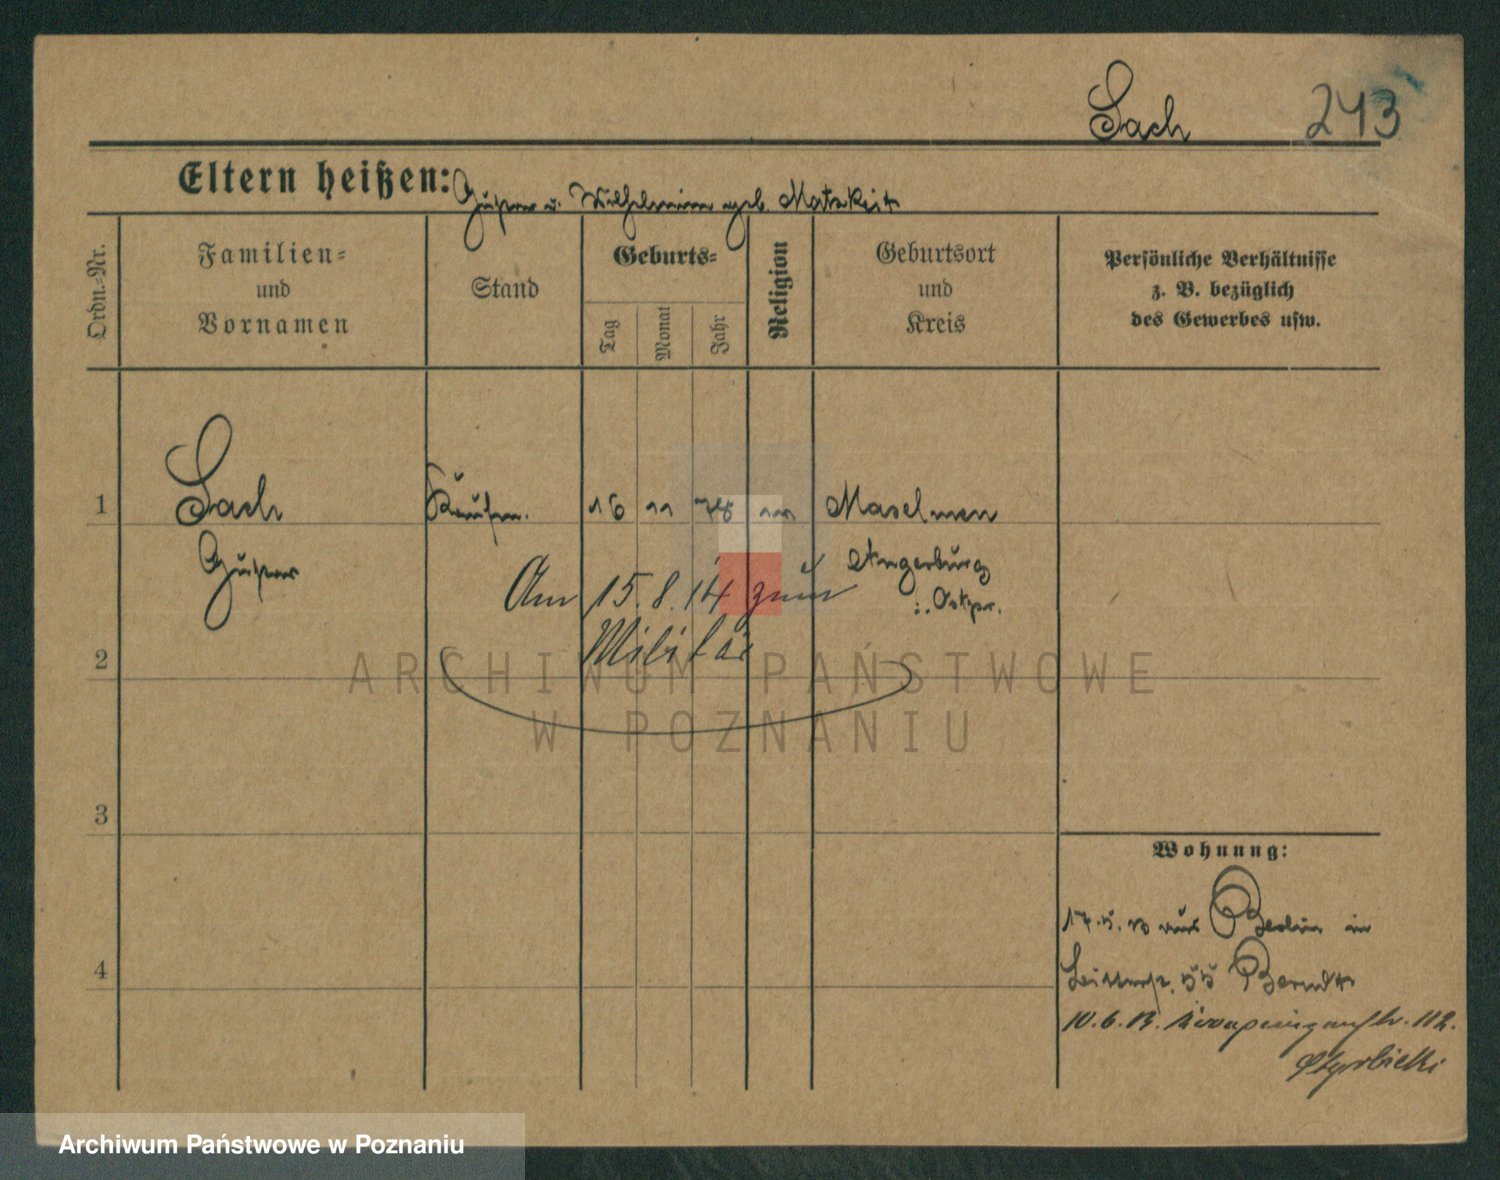 Sach 243
Eltern heißen: Gustav u. Wilhelmine geb. Matzkeit
Ordn.-Nr.
Familien-
und
Vornamen
Stand
Geburts-
Tag
Monat
Jahr
Religion
Geburtsort
und
Kreis
Persönliche Verhältnisse
z. B. bezüglich
des Gewerbes usw.
1 Sach Kaufm. 16 11 78
Gustav Angerburg
Ostpr.
Am 15.8.14 zum
Militär
2
3
4
Wohnung:
17.5. aus Berlin in
55 Berndt
10.6.13. 112.
ARCHIWUM PAŃSTWOWE
W POZNANIU
Archiwum Państwowe w Poznaniu